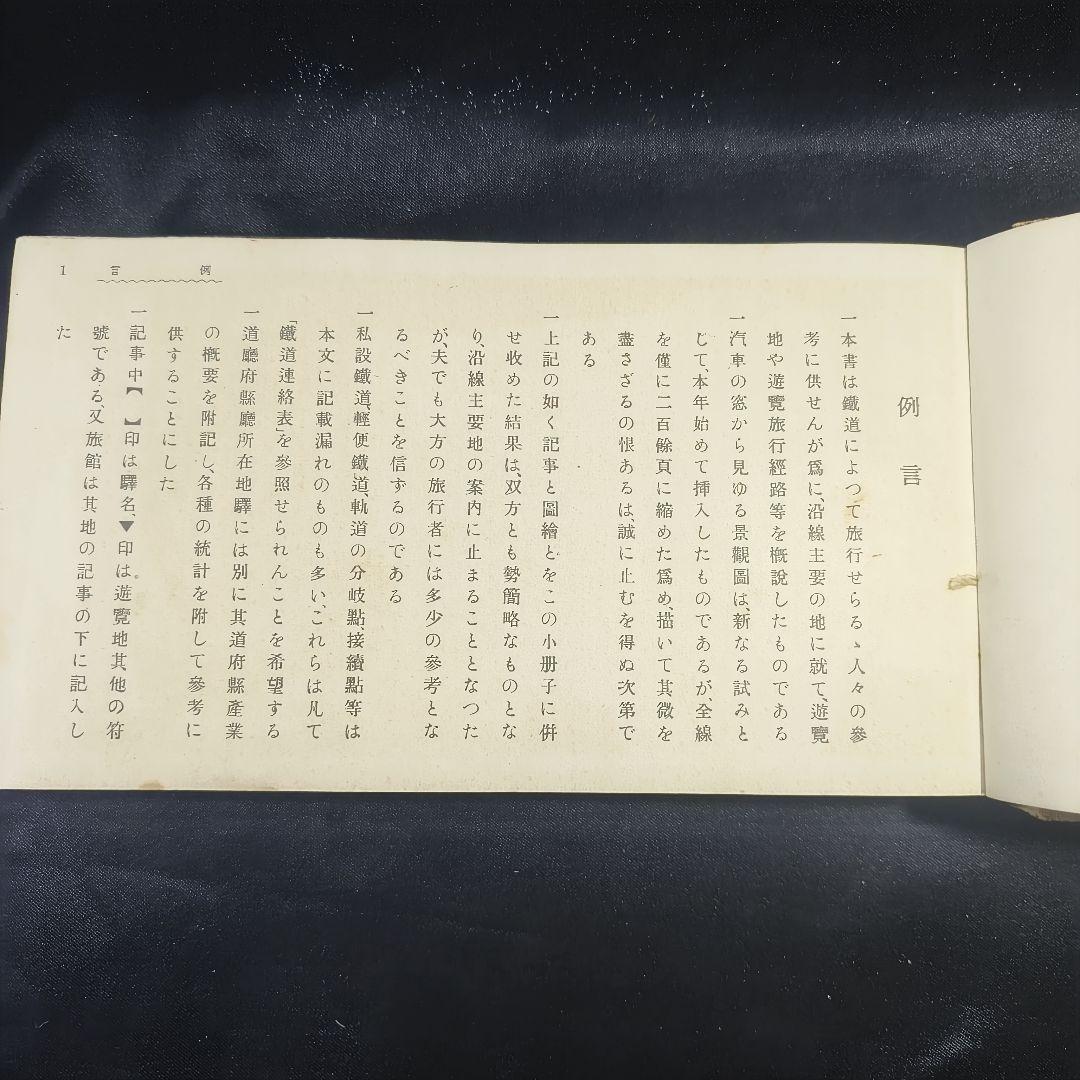 例言 1
例言
一本書は鐵道によつて旅行せらるゝ人々の參
考に供せんが爲に、沿線主要の地に就て、遊覽
地や遊覽旅行經路等を概說したものである
一汽車の窓から見ゆる景觀圖は、新なる試みと
じて、本年始めて挿入したものであるが、全線
を僅に二百餘頁に縮めた爲め、描いて其微を
盡さざるの恨あるは、誠に止むを得ぬ次第で
ある
一上記の如く記事と圖繪とをこの小册子に併
せ收めた結果は、双方とも勢簡略なものとな
り、沿線主要地の案内に止まることとなつた
が、夫でも大方の旅行者には多少の參考とな
るべきことを信ずるのである
一私設鐵道、輕便鐵道、軌道の分岐點、接續點等は
本文に記載漏れのものも多い、これらは凡て
「鐵道連絡表」を參照せられんことを希望する
一道廳府縣廳所在地驛には別に其道府縣產業
の概要を附記し、各種の統計を附して參考に
供することにした
一記事中【 】印は驛名、▼印は遊覽地其他の符
號である、又旅館は其地の記事の下に記入し
た